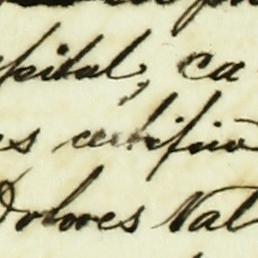 spital, ca
es certifico
Dolores Nat